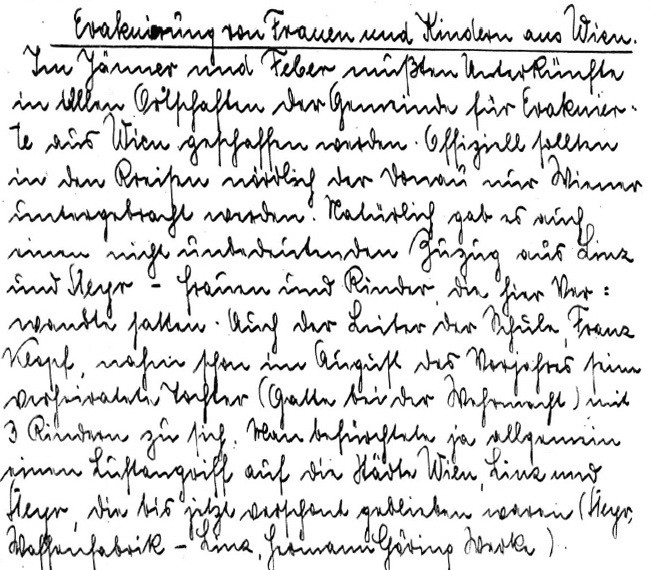 Evakuierung von Frauen und Kindern aus Wien.
Im Jänner und Feber mußten Unterkünfte
in allen Ortschaften der Gemeinde für Evakuier-
te aus Wien geschaffen werden. Offiziell sollten
in den Kreisen nördlich der Donau nur Wiener
untergebracht werden. Natürlich gab es auch
einen nicht unbedeutenden Zuzug aus Linz
und Steyr - Frauen und Kinder, die hier Ver=
wandte hatten. Auch der Leiter der Schule, Franz
Klopf, nahm schon im August des Vorjahres seine
verheiratete Tochter (Gatte bei der Wehrmacht) mit
3 Kindern zu sich. Man befürchtete ja allgemein
einen Luftangriff auf die Städte Wien, Linz und
Steyr, die bis jetzt verschont geblieben waren (Steyr,
Waffenfabrik - Linz, Hermann Göring Werke).